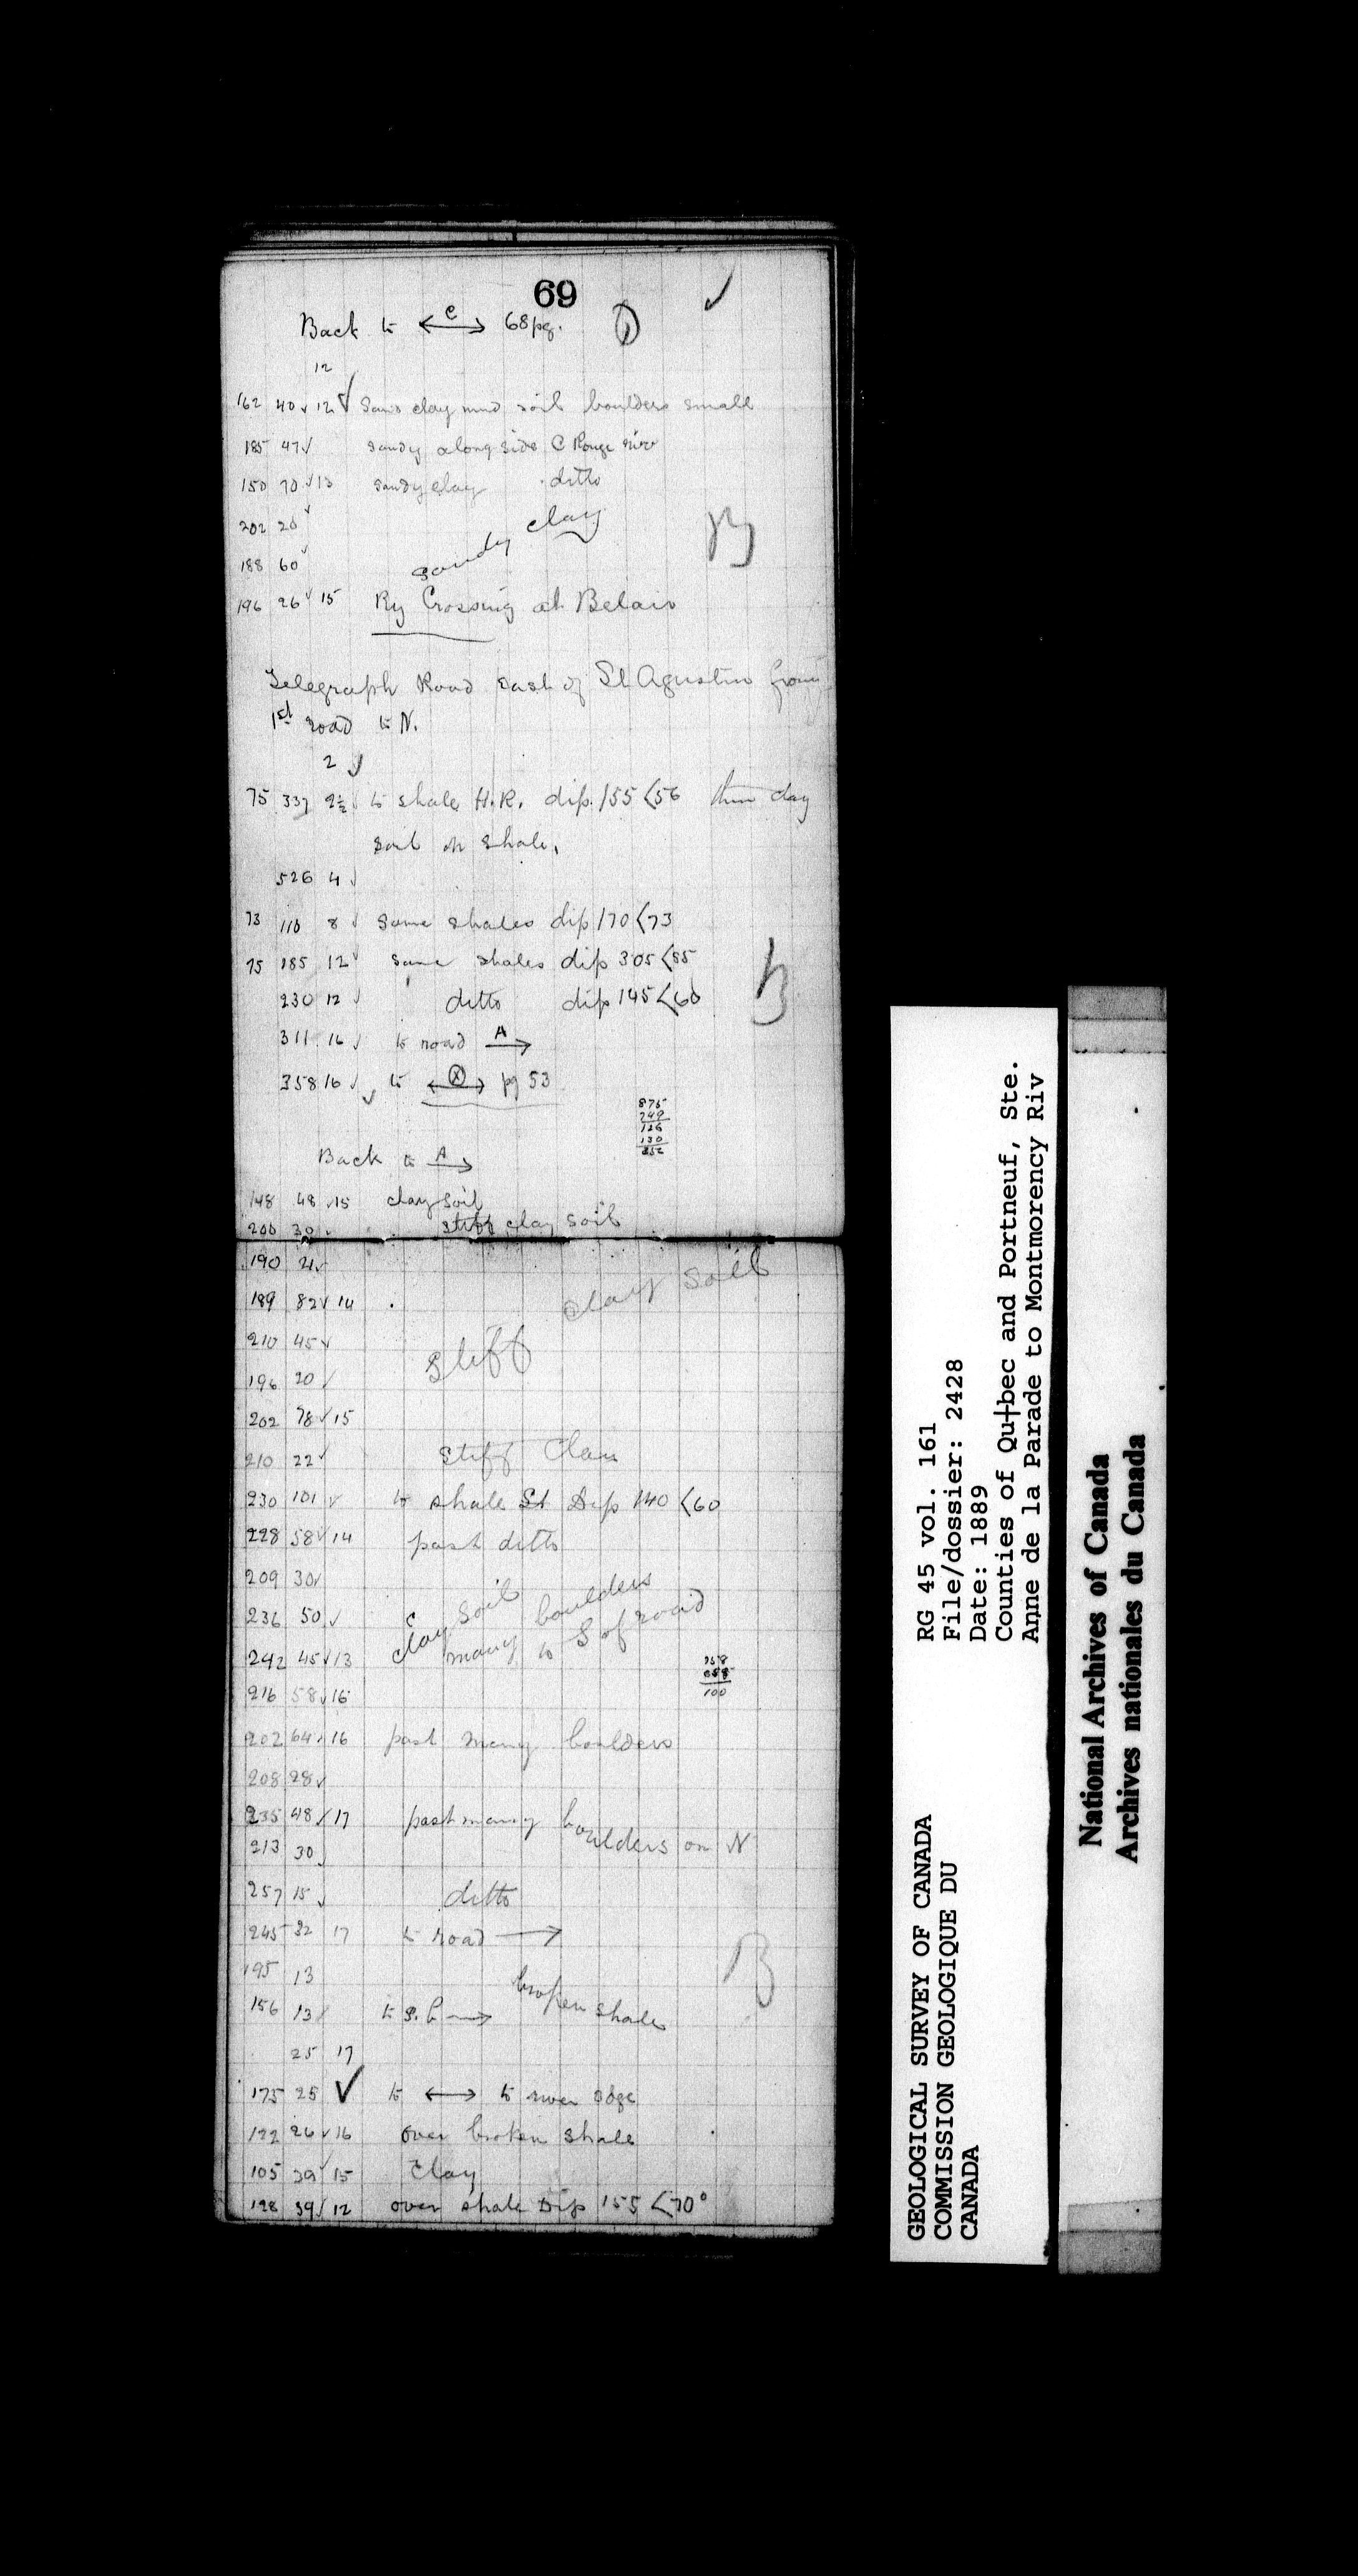 69
Back to ⟷ C 68 pg.
12
162 40 12 Sand clay mud soil boulders small
185 47 sandy along side C Rouge river
150 70 13 sandy clay ditto
202 20
188 60 sandy clay
196 26 15 Ry Crossing at Belair
Telegraph Road East of St Agustin from
1st road to N.
2
75 337 2½ to shale H.R. dip 155 <56 thin clay
soil on shale.
526 4
73 110 8 Same shales dip 170 <73
75 185 12 same shales dip 305 <85
230 12 ditto dip 145 <60
311 16 to road A →
358 16 to ⟷ Ⓧ pg 53
875
749
126
130
Back to A →
148 48 15 clay soil
200 30 stiff clay soil
190 21
189 82 14
210 45 stiff clay soil
196 20
202 78 15
210 22 Stiff Clay
230 101 to shale St Dip 140 <60
228 58 14 past ditto
209 30
236 50 clay soil
242 45 13 many boulders to S of road
758
658
100
216 58 16
202 64 16 past many boulders
208 28
235 48 17 past many boulders on N
213 30
257 15 ditto
245 32 17 to road →
195 13 broken shales
156 13 to →
25 17
175 25 to ⟷ to river edge
122 26 16 over broken shale
105 39 15 Clay
128 39 12 over shale Dip 155 <70°
GEOLOGICAL SURVEY OF CANADA
COMMISSION GEOLOGIQUE DU
CANADA
RG 45 vol. 161
File/dossier: 2428
Date: 1889
Counties of Qu†bec and Portneuf, Ste.
Anne de la Parade to Montmorency Riv
National Archives of Canada
Archives nationales du Canada